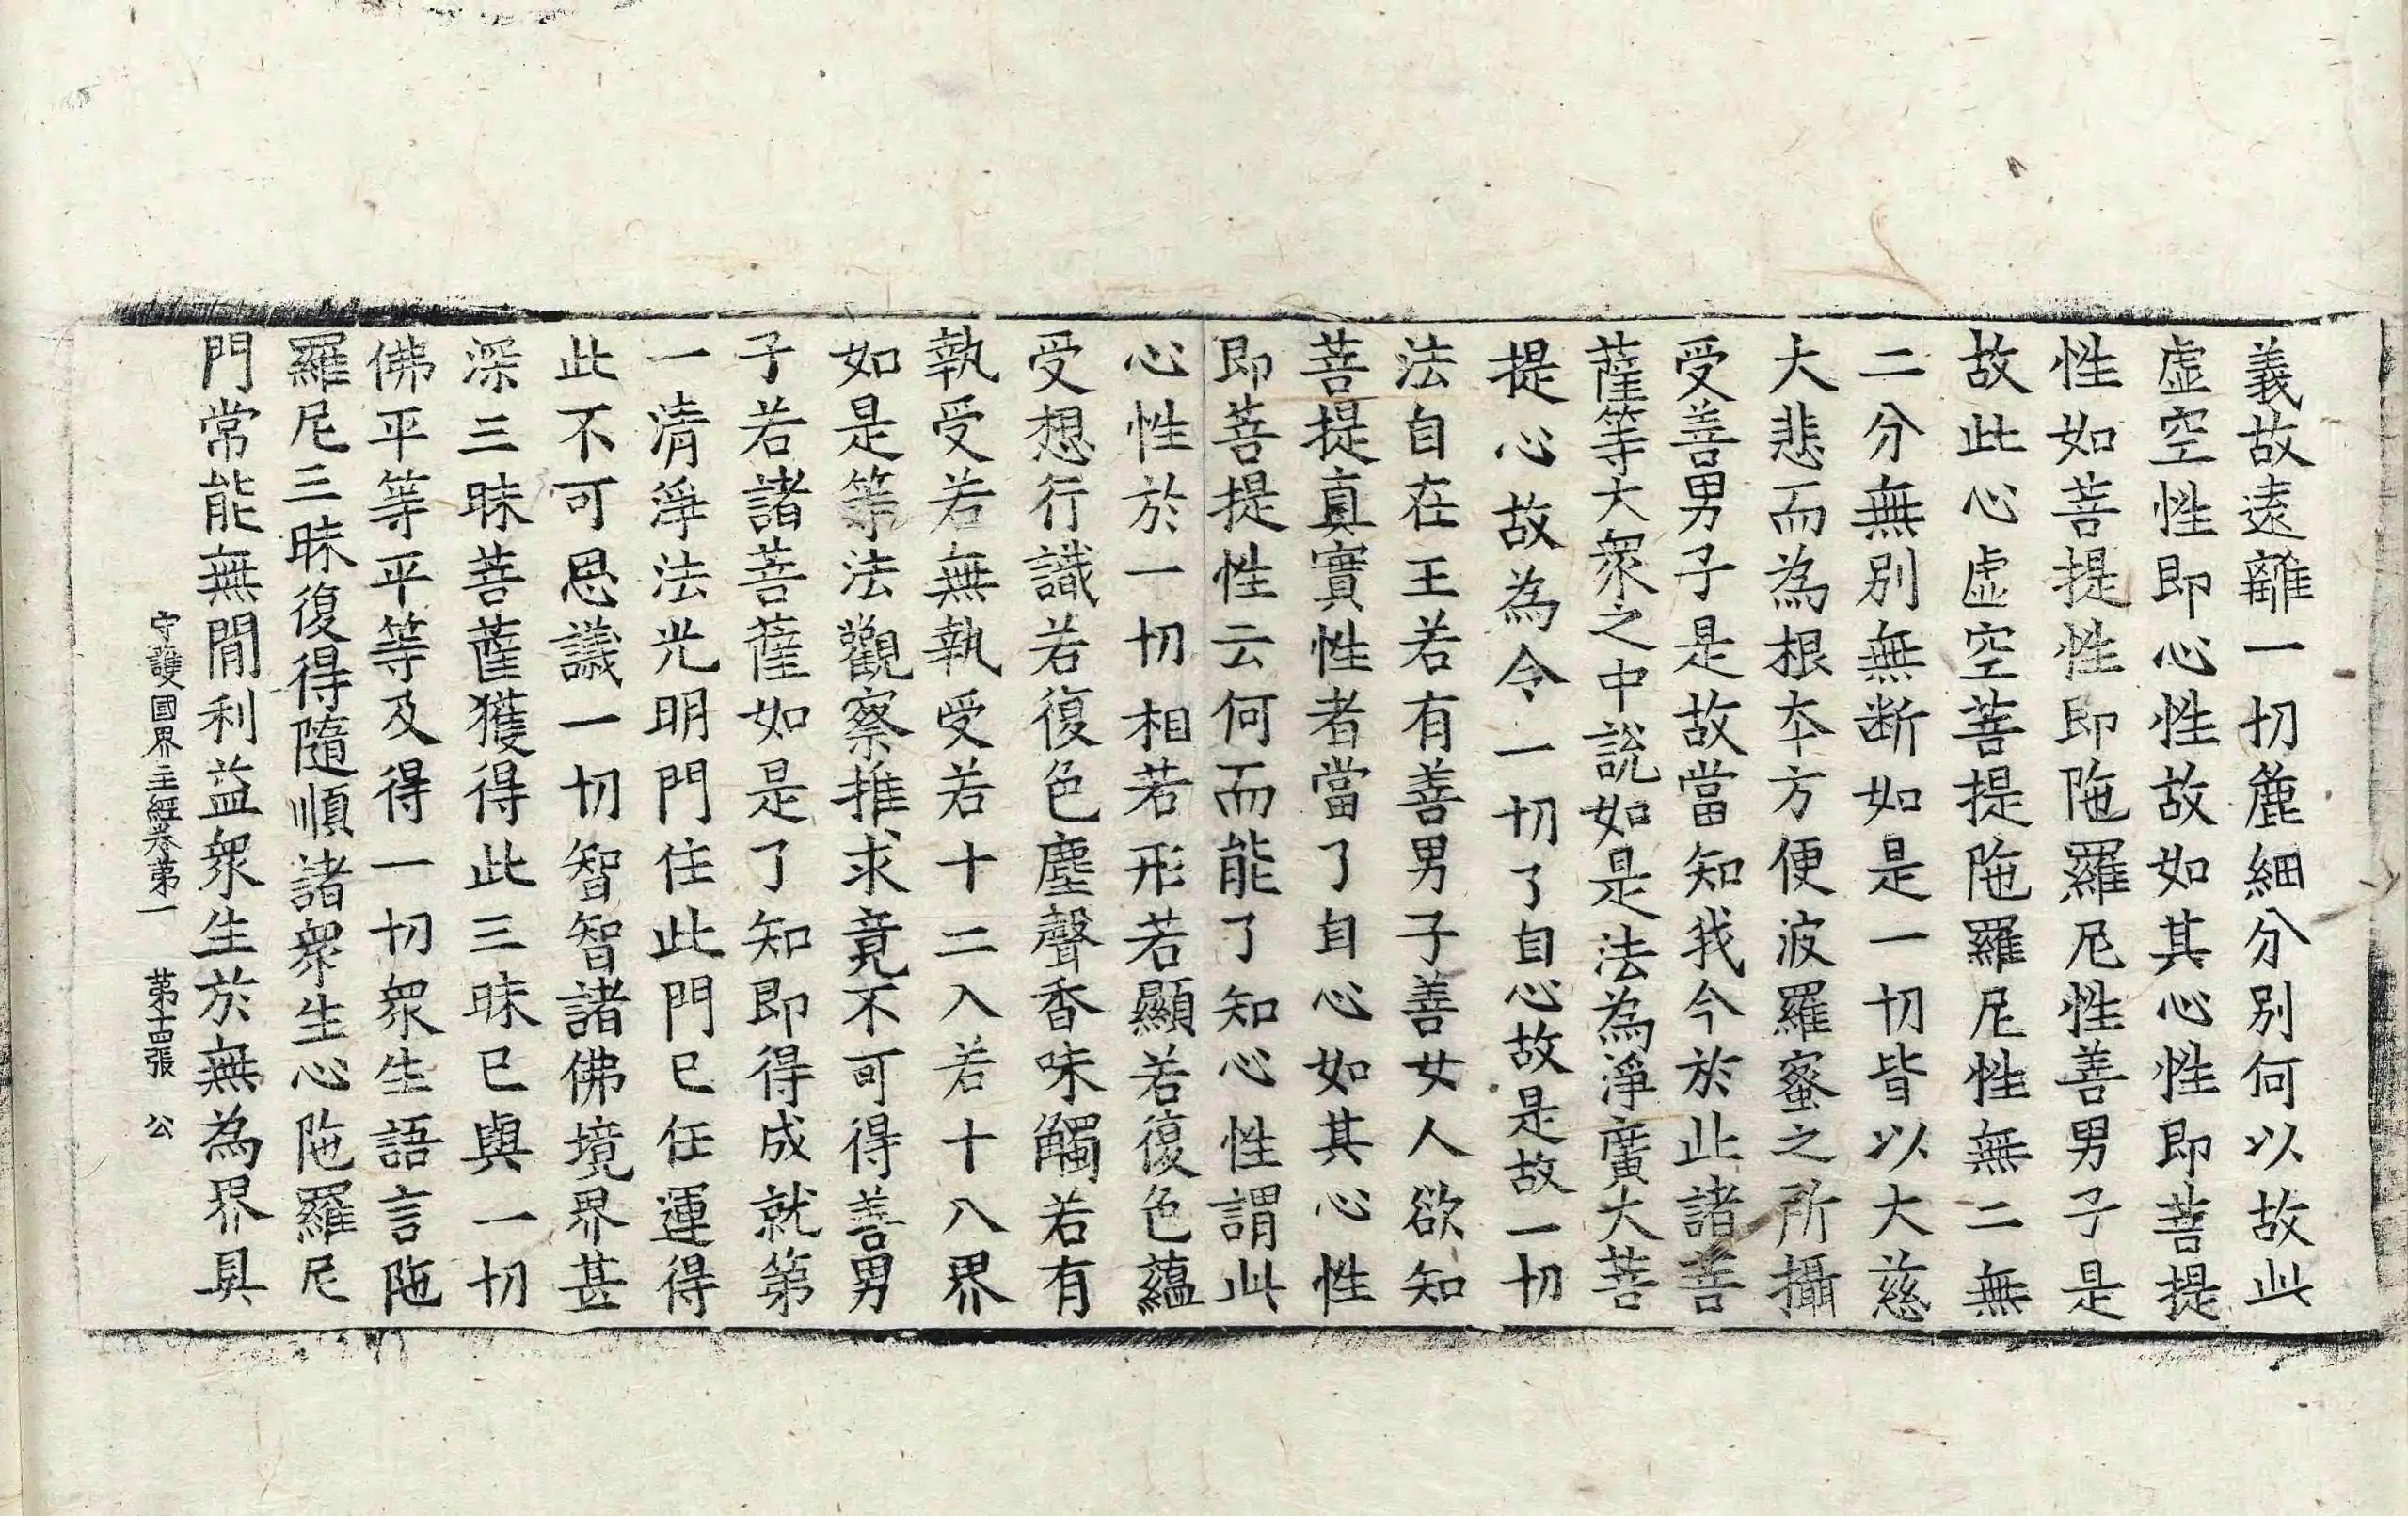 義故遠離一切麁細分別何以故此
虛空性即心性故如其心性即菩提
性如菩提性即陁羅尼性善男子是
故此心虛空菩提陁羅尼性無二無
二分無別無断如是一切皆以大慈
大悲而為根本方便波羅蜜之所攝
受善男子是故當知我今於此諸菩
薩等大衆之中說如是法為淨廣大菩
提心故為令一切了自心故是故一切
法自在王若有善男子善女人欲知
菩提真實性者當了自心如其心性
即菩提性云何而能了知心性謂此
心性於一切相若形若顯若復色蘊
受想行識若復色塵聲香味觸若有
執受若無執受若十二入若十八界
如是等法觀察推求竟不可得善男
子若諸菩薩如是了知即得成就第
一清淨法光明門住此門已任運得
此不可思議一切智智諸佛境界甚
深三昧菩薩獲得此三昧已與一切
佛平等平等及得一切衆生語言陁
羅尼三昧復得隨順諸衆生心陁羅尼
門常能無間利益衆生於無為界具
守護國界主經卷第一 第十四張 公